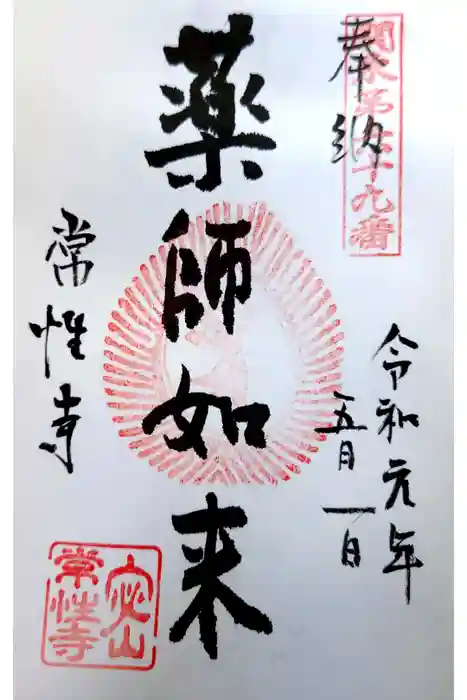 第
十九番
奉納
令和元年
五月一日
薬師如来
常性寺
山
常性寺